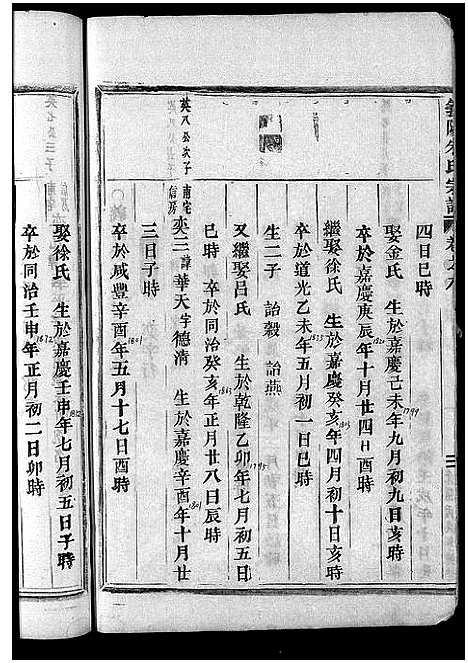 朱氏宗譜 卷之六
四日巳時
娶金氏 生於嘉慶己未年九月初九日亥時 1799
卒於嘉慶庚辰年十月廿四日酉時 1820
繼娶徐氏 生於嘉慶癸亥年四月初十日亥時 1803
卒於道光乙未年五月初一日巳時 1835
生二子 詒穀 詒燕
又繼娶呂氏 生於乾隆乙卯年七月初五日 1795
巳時 卒於同治癸亥年正月廿八日辰時 1863
英八公次子 南宅信房 奕三 諱華天字德清 生於嘉慶辛酉年十月廿 1801
三日子時
卒於咸豐辛酉年五月十七日酉時
娶徐氏 生於嘉慶壬申年七月初五日子時 1812
卒於同治壬申年正月初二日卯時 1872